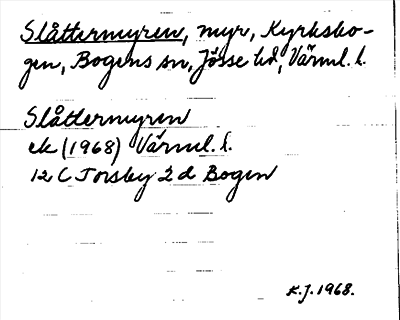 Slåttermyren, myr, Kyrksbo-
gen, Bogens sn, Jösse hd, Värml. l.
Slåttermyren
ek (1968) Värml. l.
12 C Torsby 2 d Bogen
K.J. 1968.